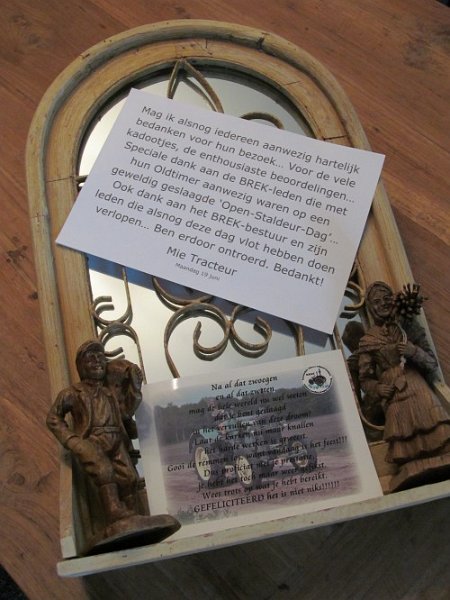 Mag ik alsnog iedereen aanwezig hartelijk
bedanken voor hun bezoek... Voor de vele
kadootjes, de enthousiaste beoordelingen...
Speciale dank aan de BREK-leden die met
hun Oldtimer aanwezig waren op een
geweldig geslaagde 'Open-Staldeur-Dag'...
Ook dank aan het BREK-bestuur en zijn
leden die alsnog deze dag vlot hebben doen
verlopen... Ben erdoor ontroerd. Bedankt!
Mie Tracteur
Maandag 19 juni
Na al dat zwoegen
en al dat zweten
mag de hele wereld nu wel weten
dat je bent geslaagd
in het vervullen van deze droom!
Laat de kurken nu maar knallen
het harde werken is geweest.
Gooi de remmen los want vandaag is het feest!!!
Dus proficiat met je prestatie
je hebt het toch maar weer geflikt.
Weet trots op wat je hebt bereikt.
GEFELICITEERD het is niet niks!!!!!!